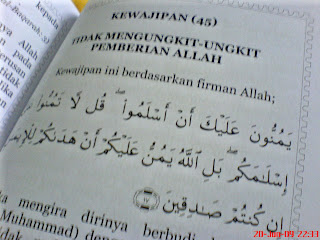 KEWAJIPAN (45)
TIDAK MENGUNGKIT-UNGKIT
PEMBERIAN ALLAH
Kewajipan ini berdasarkan firman Allah;
يَمُنُّونَ عَلَيْكَ أَنْ أَسْلَمُوا۟ ۖ قُل لَّا تَمُنُّوا۟
إِسْلَـٰمَكُم ۖ بَلِ ٱللَّهُ يَمُنُّ عَلَيْكُمْ أَنْ هَدَىٰكُمْ لِلْإِيمَـ
إِن كُنتُمْ صَـٰدِقِينَ ١٧
mengira dirinya berbudi
Muhammad) den
kepada
Allah
pada
erusan
tidak
20-Jun-09 22:33